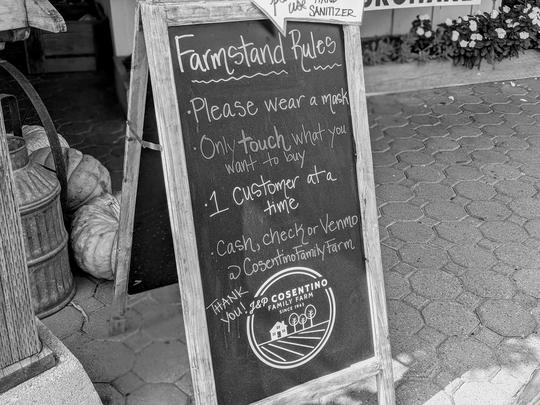 USE HAND
SANITIZER
Farmstand Rules
· Please wear a mask
· Only touch what you
want to buy
· 1 customer at a
time
· Cash, check or Venmo
@CosentinoFamilyFarm
THANK
YOU!
J&P COSENTINO
FAMILY FARM
SINCE 1943